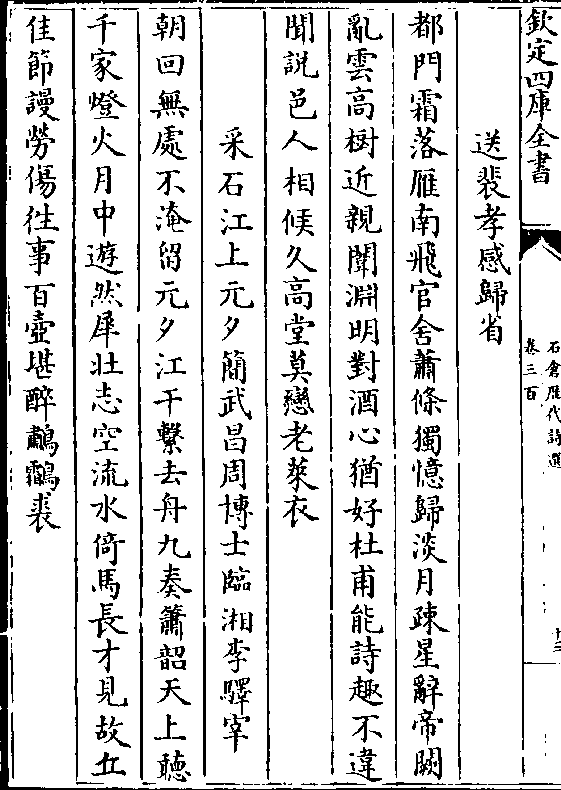 欽定四庫全書
石倉歷代詩選
卷三百
十三
送裴孝感歸省
都門霜落雁南飛官舍蕭條獨憶歸淡月疎星辭帝闕
亂雲髙樹近親闈淵明對酒心猶好杜甫能詩趣不違
聞說邑人相候久髙堂莫戀老萊衣
采石江上元夕簡武昌周博士臨湘李驛宰
朝回無處不淹留元夕江干繫去舟九奏簫韶天上聽
千家燈火月中遊然犀壯志空流水倚馬長才見故丘
佳節謾勞傷徃事百壺堪醉鷫鸘裘